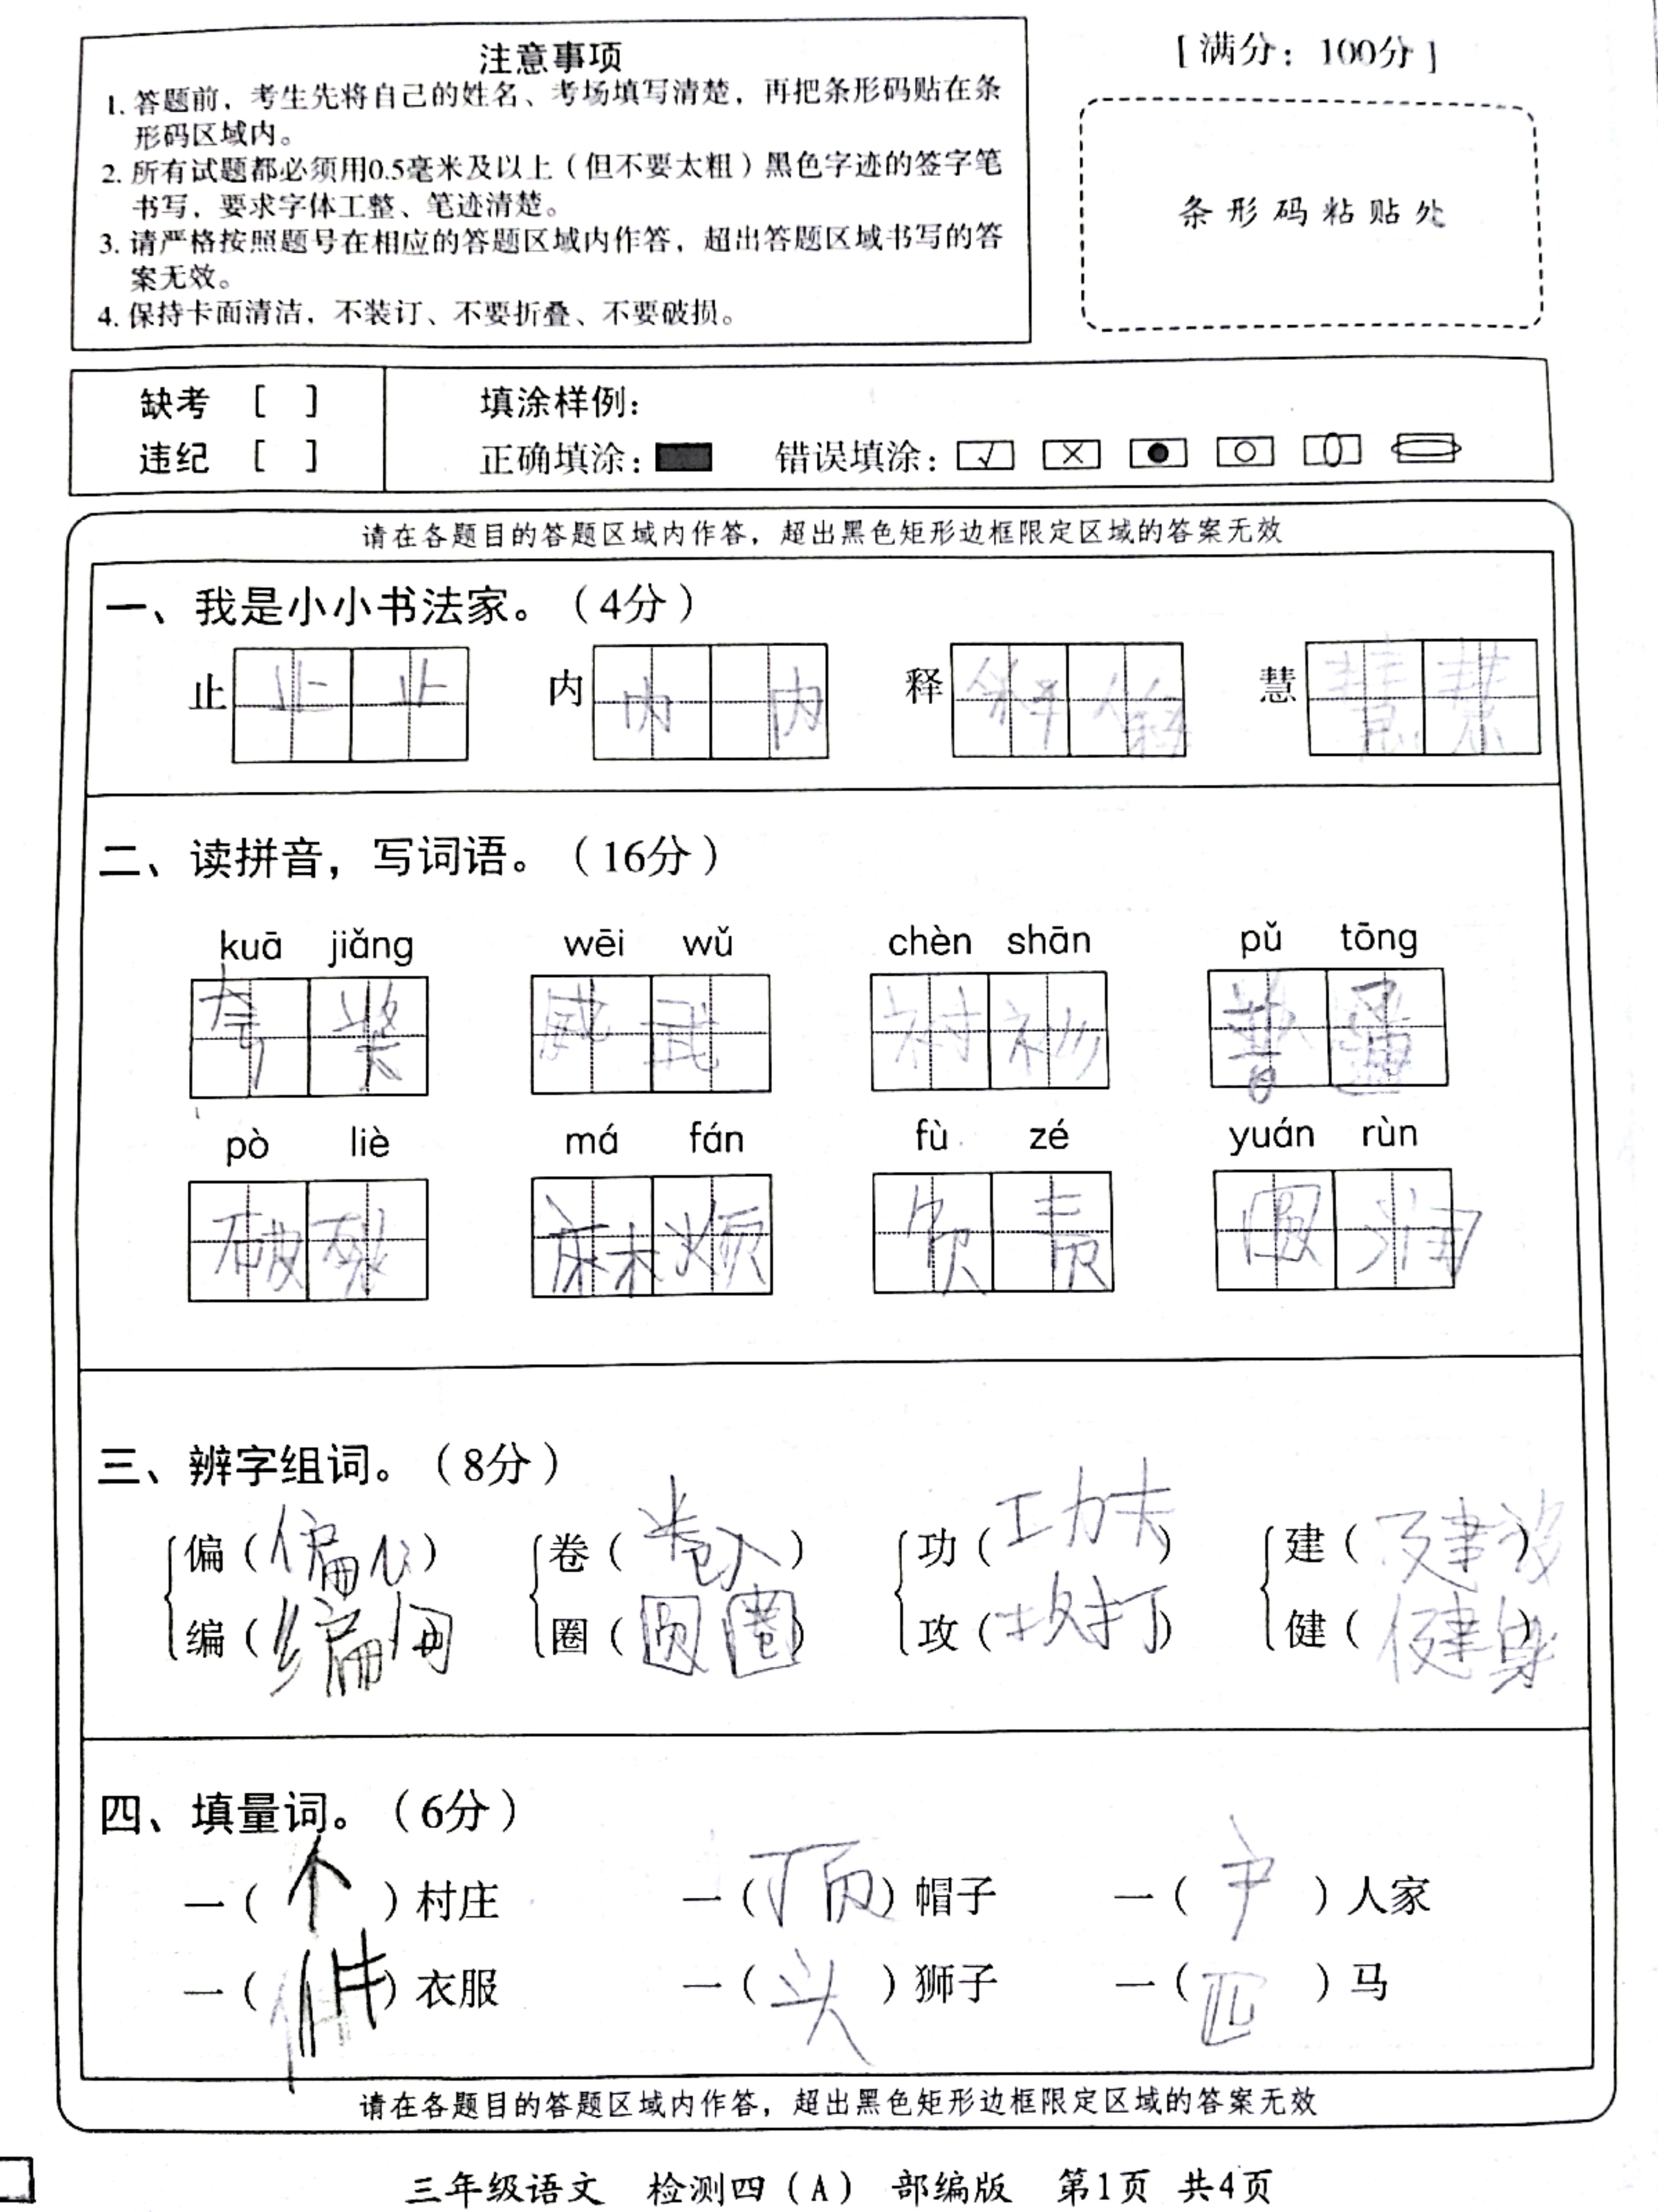 注意事项
1. 答题前，考生先将自己的姓名、考场填写清楚，再把条形码贴在条
形码区域内。
2. 所有试题都必须用0.5毫米及以上（但不要太粗）黑色字迹的签字笔
书写，要求字体工整、笔迹清楚。
3. 请严格按照题号在相应的答题区域内作答，超出答题区域书写的答
案无效。
4. 保持卡面清洁，不装订、不要折叠、不要破损。
[ 满分：100分 ]
条形码粘贴处
缺考 [ ] 填涂样例：
违纪 [ ] 正确填涂： 错误填涂：
请在各题目的答题区域内作答，超出黑色矩形边框限定区域的答案无效
一、我是小小书法家。（4分）
止 止 止 内 内 内 释 释 释 慧 慧 慧
二、读拼音，写词语。（16分）
kuā jiǎng wēi wǔ chèn shān pǔ tōng
夸 奖 威 武 衬 衫 普 通
pò liè má fán fù zé yuán rùn
破 裂 麻 烦 负 责 圆 润
三、辨字组词。（8分）
偏（偏心） 卷（卷入） 功（功夫） 建（建设）
编（编） 圈（圆圈） 攻（攻打） 健（健身）
四、填量词。（6分）
一（个）村庄 一（顶）帽子 一（户）人家
一（件）衣服 一（头）狮子 一（匹）马
请在各题目的答题区域内作答，超出黑色矩形边框限定区域的答案无效
三年级语文 检测四（A） 部编版 第1页 共4页